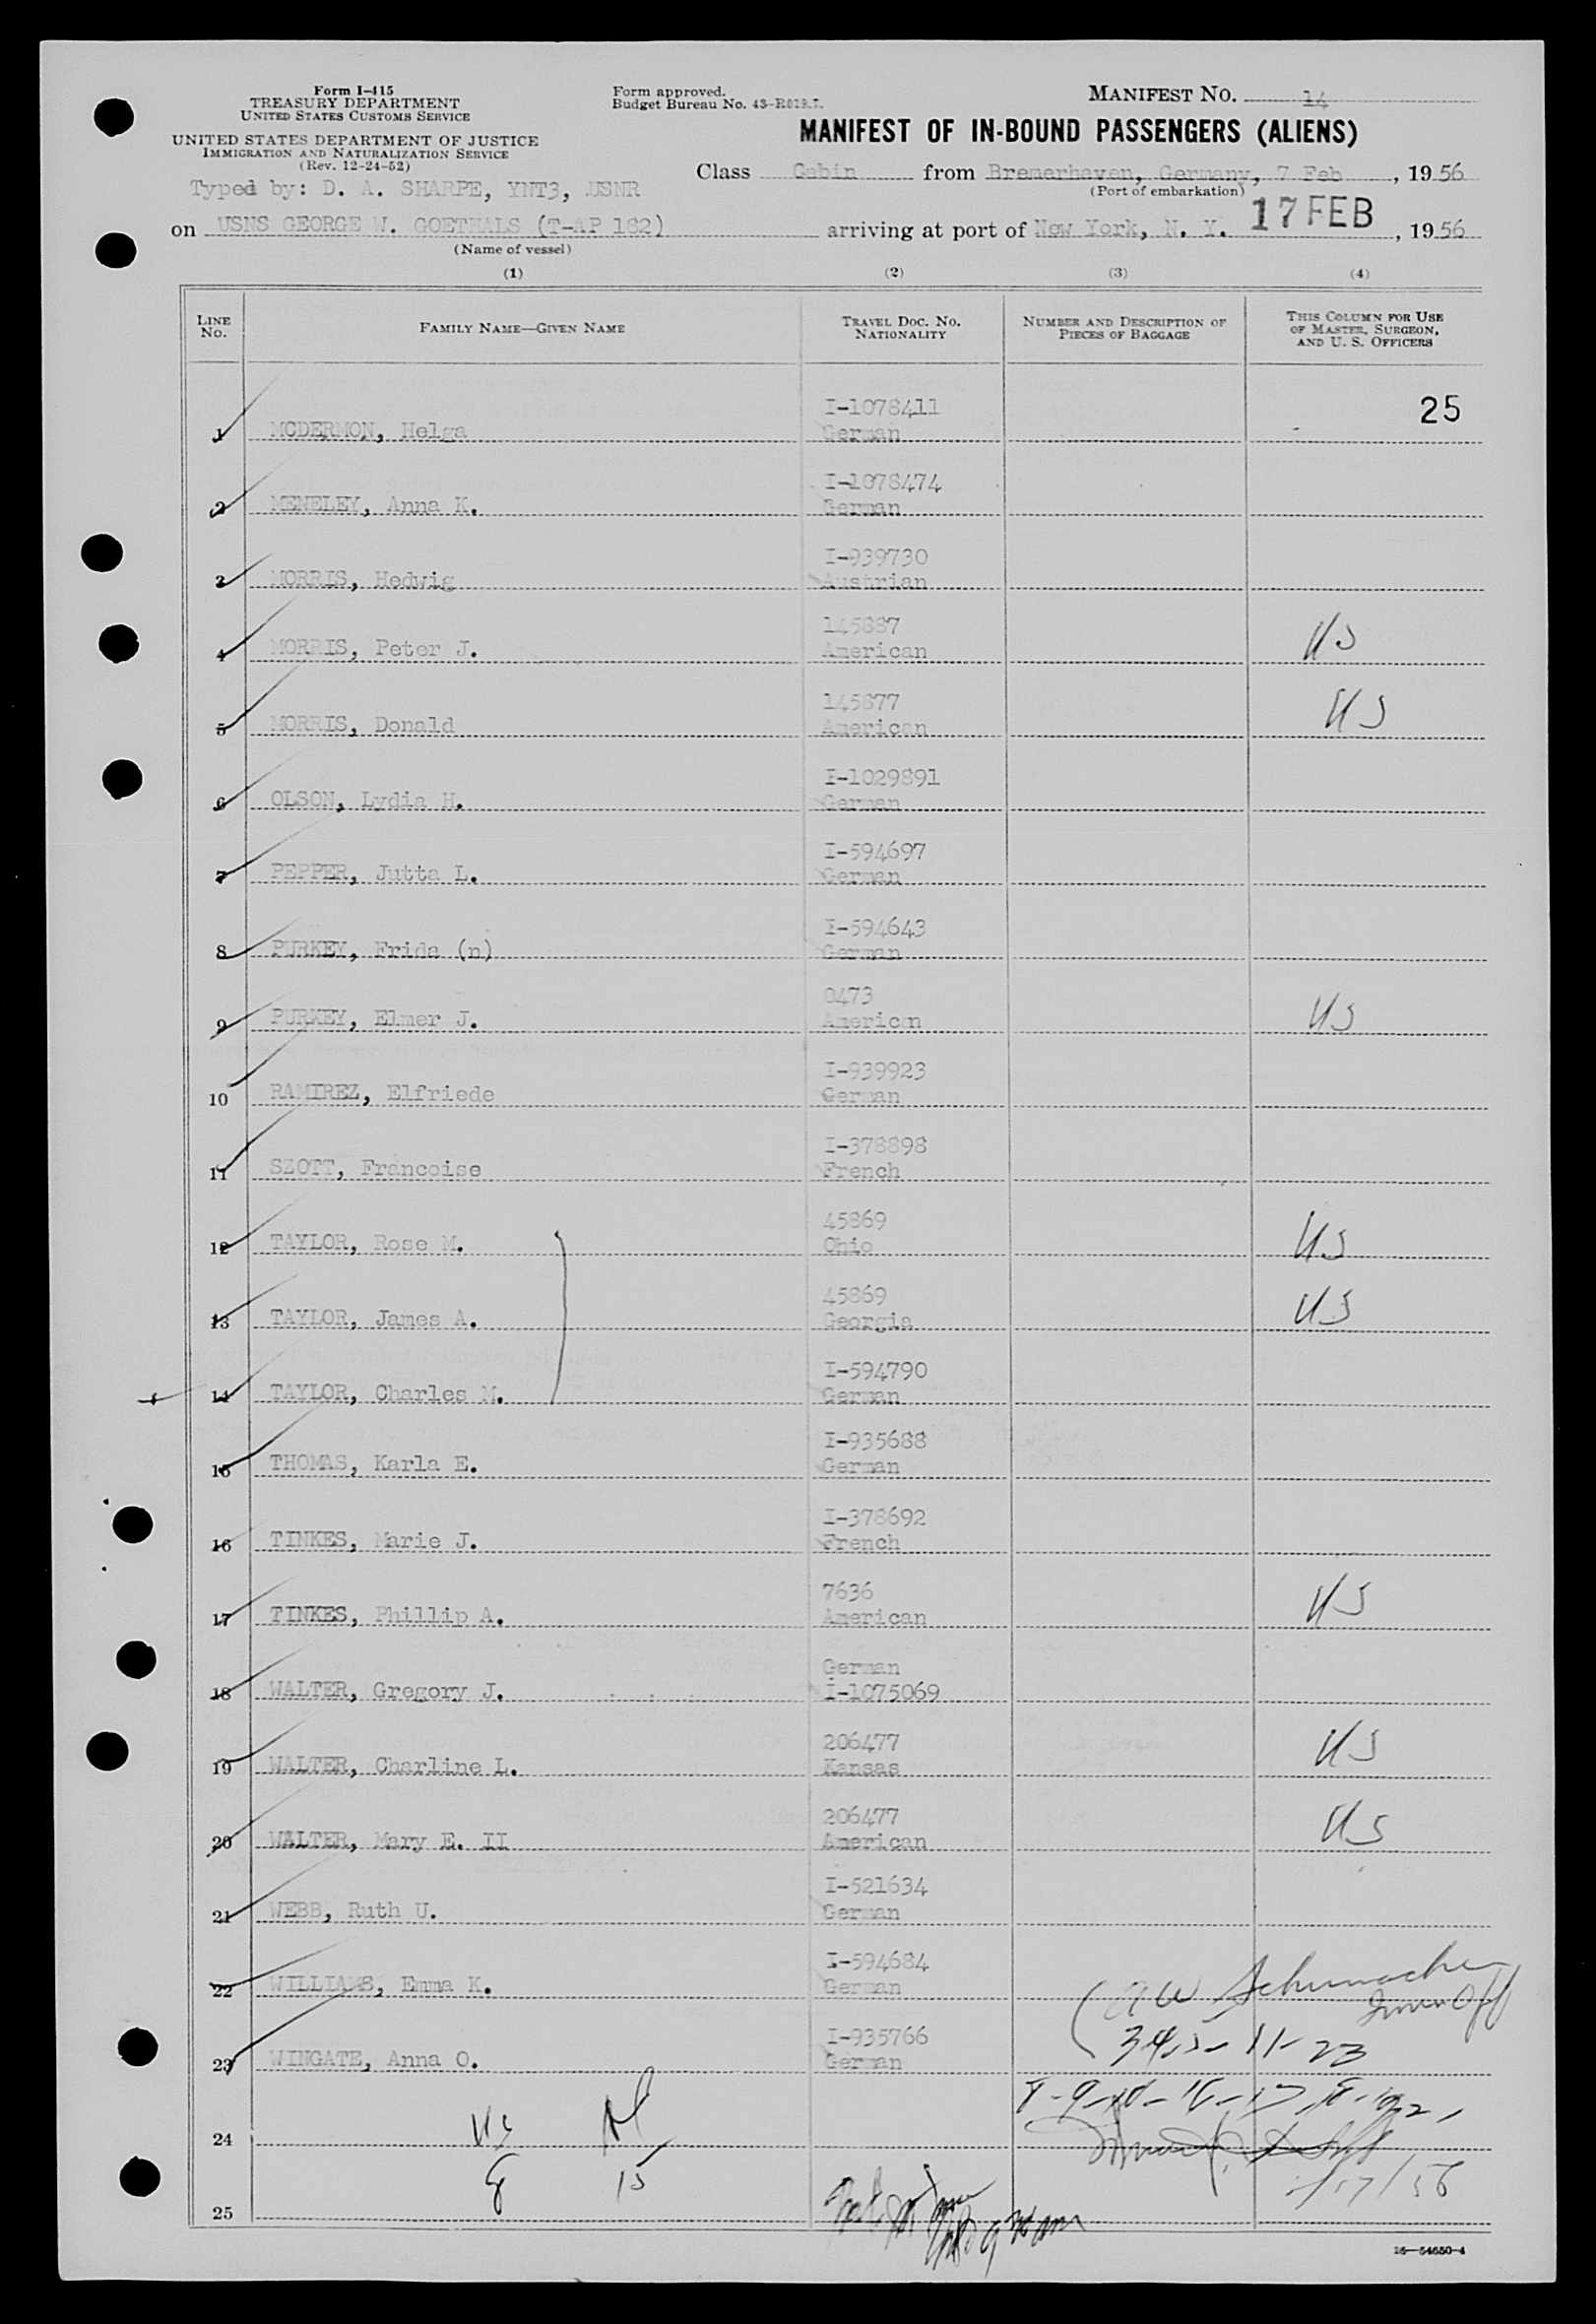 Form I-415
TREASURY DEPARTMENT
UNITED STATES CUSTOMS SERVICE
UNITED STATES DEPARTMENT OF JUSTICE
IMMIGRATION AND NATURALIZATION SERVICE
(Rev. 12-24-52)
Form approved.
Budget Bureau No. 43-
MANIFEST NO. 14
MANIFEST OF IN-BOUND PASSENGERS (ALIENS)
Typed by: D. A. SHARPE, YNT3, USNR
Class Cabin from Bremerhaven, Germany, 7 Feb, 1956
(Port of embarkation)
on USNS GEORGE W. GOETHALS (T-AP 182) arriving at port of New York, N. Y. 17 FEB, 1956
(Name of vessel)
(1) (2) (3) (4)
LINE NO. FAMILY NAME—GIVEN NAME TRAVEL DOC. NO. NATIONALITY NUMBER AND DESCRIPTION OF PIECES OF BAGGAGE THIS COLUMN FOR USE OF MASTER, SURGEON, AND U. S. OFFICERS
25
I-1078411
1 MCDERMON, Helga German
I-1078474
2 MENELEY, Anna K. German
I-939730
3 MORRIS, Hedwig Austrian
145887
4 MORRIS, Peter J. American US
145877
5 MORRIS, Donald American US
I-1029891
6 OLSON, Lydia H. German
I-594697
7 PEPPER, Jutta L. German
I-594643
8 PURKEY, Frida (n) German
0473
9 PURKEY, Elmer J. American US
I-939923
10 RAMIREZ, Elfriede German
I-378898
11 SZOTT, Francoise French
45869
12 TAYLOR, Rose M. Ohio US
45869
13 TAYLOR, James A. Georgia US
I-594790
14 TAYLOR, Charles M. German
I-935688
15 THOMAS, Karla E. German
I-378692
16 TINKES, Marie J. French
7636
17 TINKES, Phillip A. American US
German
18 WALTER, Gregory J. I-1075069
206477
19 WALTER, Charline L. Kansas US
206477
20 WALTER, Mary E. II American US
I-521634
21 WEBB, Ruth U. German
I-594684
22 WILLIAMS, Emma K. German
A W Schumacher
Imm Off
I-935766
23 WINGATE, Anna O. German
3 4, 5- 11- 23
US
24
8 15
2/17/56
25
16—54650-4